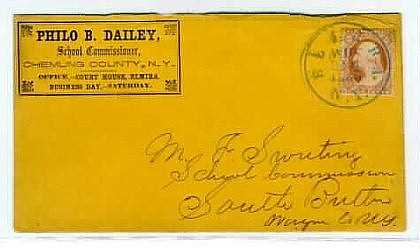 PHILO B. DAILEY,
School Commissioner,
CHEMUNG COUNTY, N.Y.
OFFICE,—COURT HOUSE, ELMIRA.
BUSINESS DAY,—SATURDAY.
M. F. Sweeting
School Commission
South Butler
Wayne Co NY